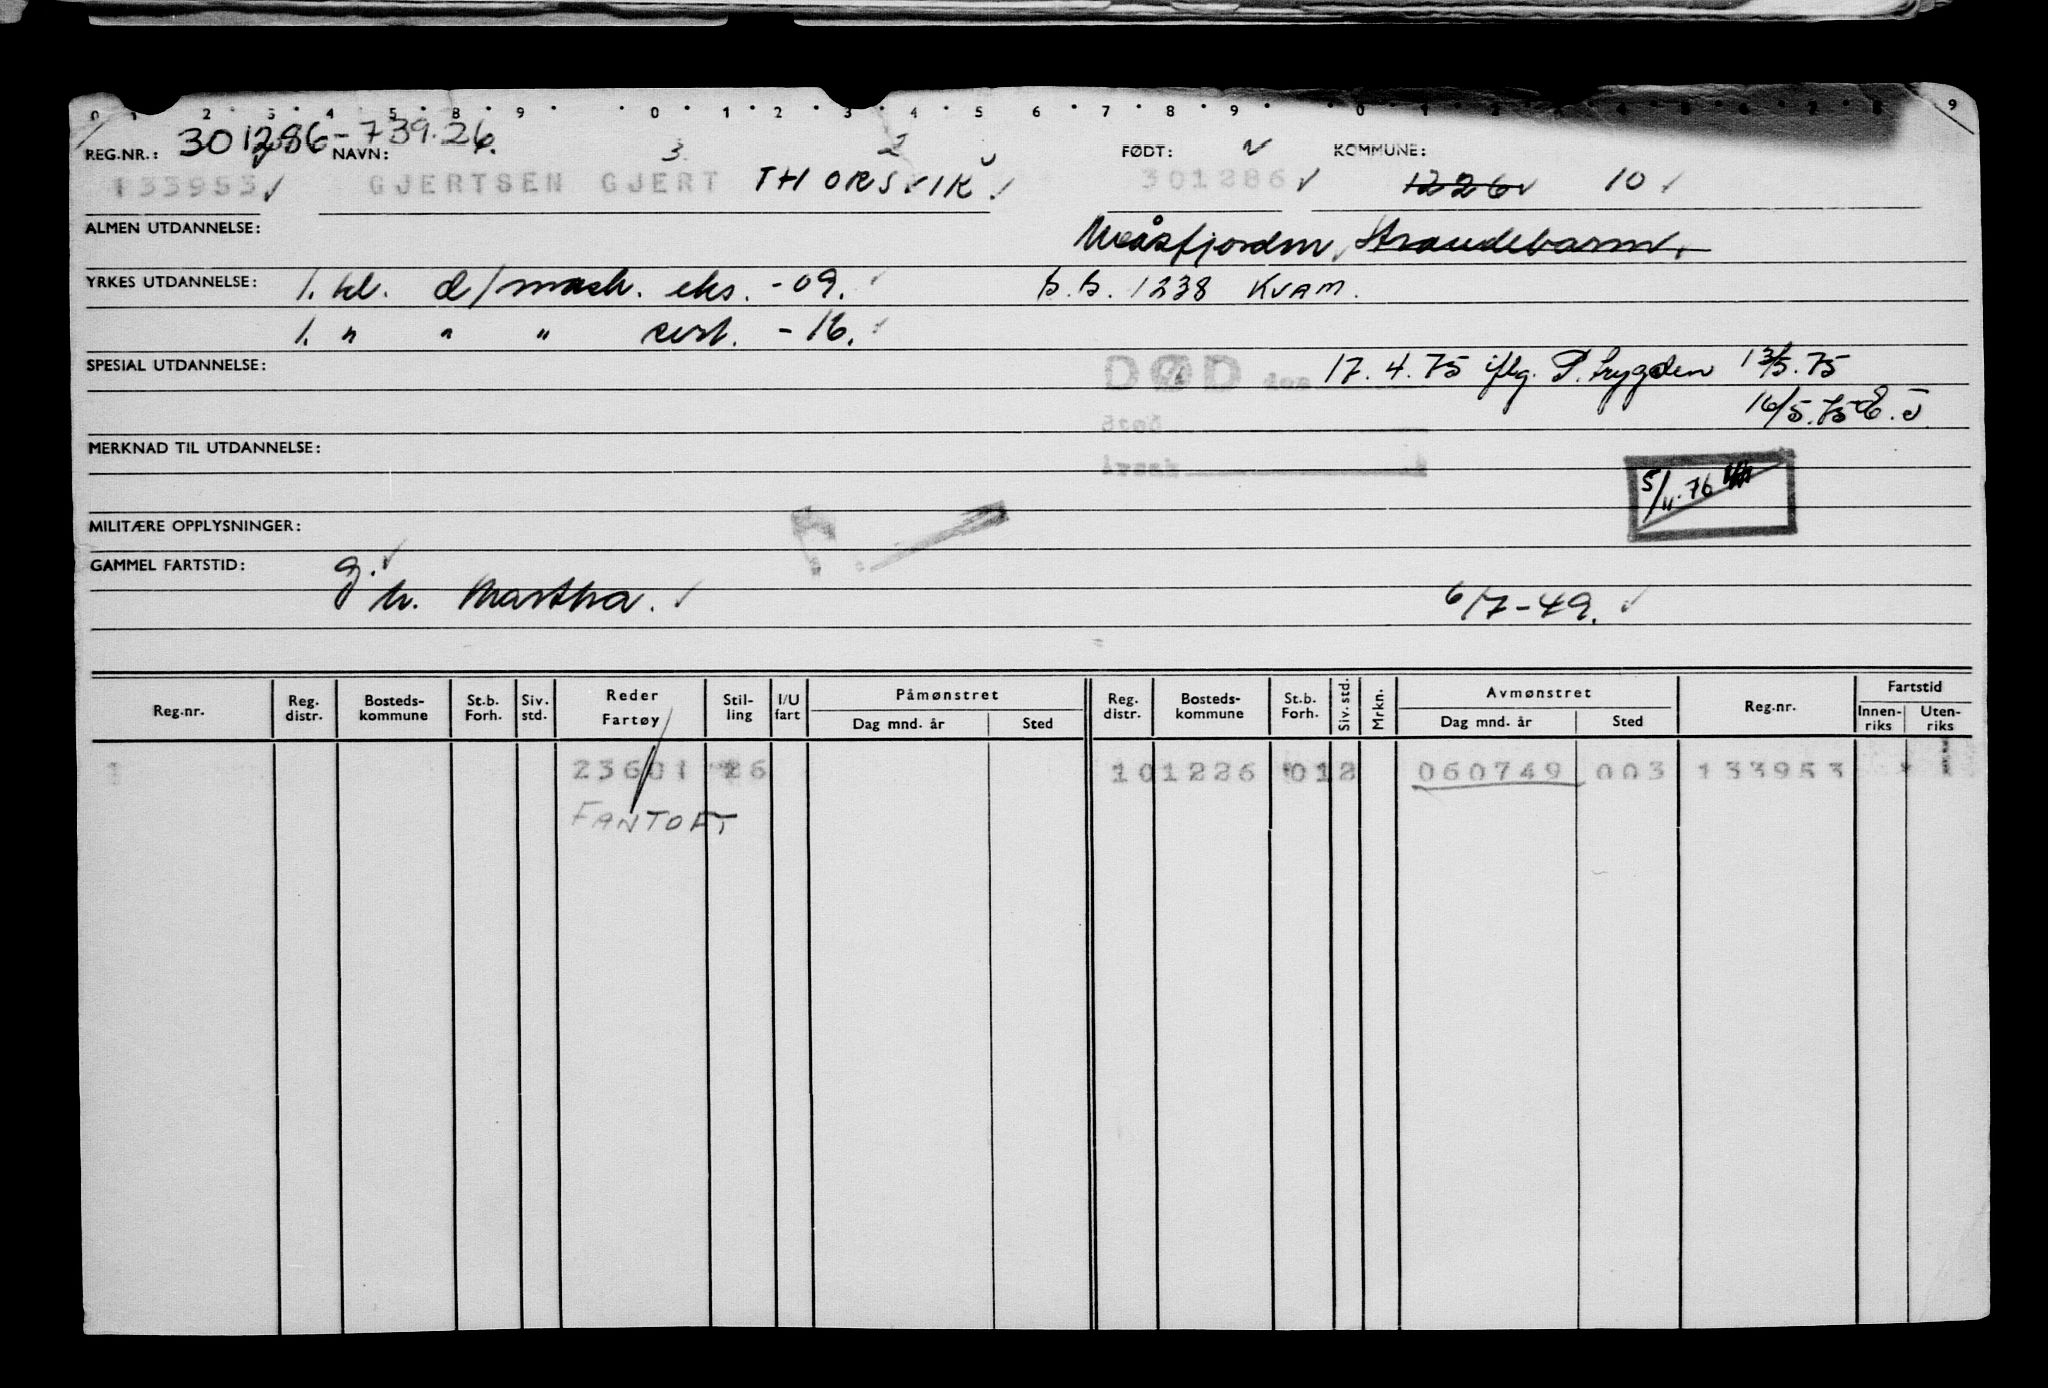 0 1 2 3 4 5 8 9 0 1 2 3 4 5 6 7 8 9 0 1 2 3 4 5 6 7 8 9
301286-739.26.
REG.NR.: NAVN: 3. 2 FØDT: KOMMUNE:
133953 GJERTSEN GJERT THORSVIK. 301286 1226 10
ALMEN UTDANNELSE: Strandebarm.
YRKES UTDANNELSE: 1. kl. d/mask. eks. -09. b.b. 1238 KVAM.
1. " " " cert. -16.
SPESIAL UTDANNELSE: DØD den 17.4.75 iflg. P. trygden 13/5.75
sted 16/5.75 E.J.
MERKNAD TIL UTDANNELSE: årsak
5/11.76
MILITÆRE OPPLYSNINGER:
GAMMEL FARTSTID: g.
h. Martha. 6/7-49.
Reg.nr. Reg. distr. Bosteds- kommune St.b. Forh. Siv. std. Reder Fartøy Stil- ling I/U fart Påmønstret Dag mnd. år Sted Reg. distr. Bosteds- kommune St.b. Forh. Siv. std. Mrkn. Avmønstret Dag mnd. år Sted Reg.nr. Fartstid Innen- riks Uten- riks
1 23601 26 10 1226 012 060749 003 133953 1
FANTOFT